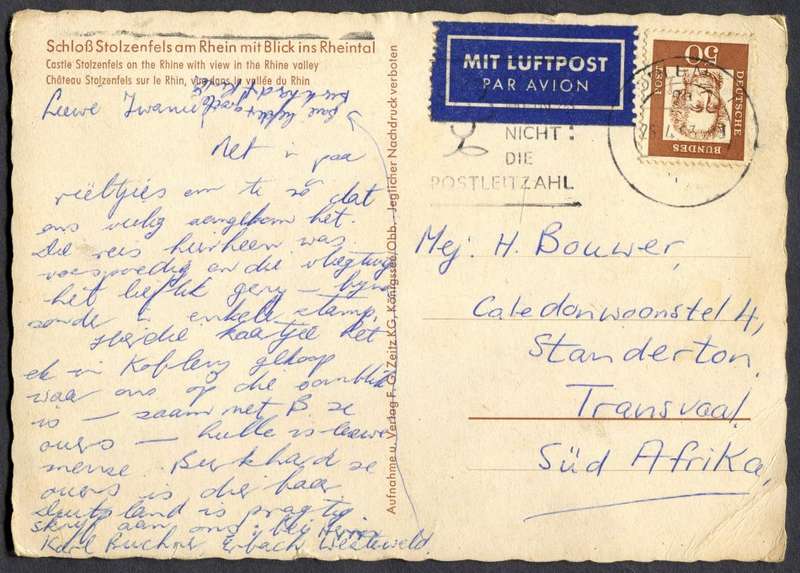 Schloß Stolzenfels am Rhein mit Blick ins Rheintal
Castle Stolzenfels on the Rhine with view in the Rhine valley
Château Stolzenfels sur le Rhin, vue dans la vallée du Rhin
Net 'n paar
reëltjies om te sê dat
ons veilig aangekom het.
Die reis hierheen was
voorspoedig en die vliegtuig
het lieflik gery — byna
sonder 'n enkele stamp.
Hierdie kaartjie het
ek in Koblenz gekoop
waar ons op die oomblik
is — saam met B. se
ouers — hulle is liewe
mense. Burkhard se
ouers is dierbaar
Duitsland is pragtig
skryf aan ons: bei Herrn
Karl Buchner Erbach Westerwald.
Aufnahme u. Verlag F. G. Zeitz KG, Königssee/Obb. · Jeglicher Nachdruck verboten
MIT LUFTPOST
PAR AVION
NICHT:
DIE
POSTLEITZAHL
50
DEUTSCHE
BUNDES
Mej. H. Bouwer,
Caledonwoonstel 4,
Standerton.
Transvaal.
Süd Afrika.